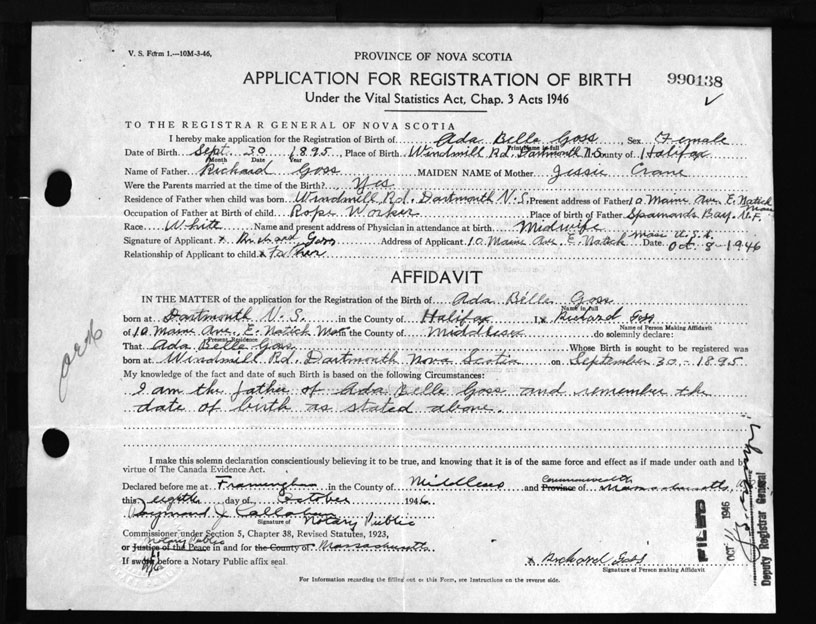 V. S. Form 1.—10M-3-46.
PROVINCE OF NOVA SCOTIA
APPLICATION FOR REGISTRATION OF BIRTH
990138
Under the Vital Statistics Act, Chap. 3 Acts 1946
TO THE REGISTRAR GENERAL OF NOVA SCOTIA
I hereby make application for the Registration of Birth of Ada Belle Goss Sex Female
Print Name in full
Date of Birth Sept. 30 1895 Place of Birth Windmill Rd. Dartmouth N.S. County of Halifax
Month Date Year
Name of Father Richard Goss MAIDEN NAME of Mother Jessie Crane
Were the Parents married at the time of the Birth? Yes
Residence of Father when child was born Windmill Rd. Dartmouth N.S. Present address of Father 10 Maine Ave. E. Natick Mass
Occupation of Father at Birth of child Rope Worker Place of birth of Father Spaniards Bay, N.F.
Race White Name and present address of Physician in attendance at birth Midwife
Signature of Applicant x Richard Goss Address of Applicant 10 Maine Ave. E. Natick Mass U.S.A. Date Oct. 8-1946
Relationship of Applicant to child x Father
AFFIDAVIT
IN THE MATTER of the application for the Registration of the Birth of Ada Belle Goss
Name in full
born at Dartmouth N.S. in the County of Halifax I x Richard Goss
Name of Person Making Affidavit
of 10 Maine Ave. E. Natick Mass in the County of Middlesex do solemnly declare:
Present Residence
That Ada Belle Goss Whose Birth is sought to be registered was
born at Windmill Rd. Dartmouth Nova Scotia on September 30, 1895
My knowledge of the fact and date of such Birth is based on the following Circumstances:
I am the father of Ada Belle Goss and remember the
date of birth as stated above.
I make this solemn declaration conscientiously believing it to be true, and knowing that it is of the same force and effect as if made under oath and by
virtue of The Canada Evidence Act.
Declared before me at Framingham in the County of Middlesex and Commonwealth Province of Massachusetts
this eighth day of October 1946
Raymond J. Callahan
Signature of Notary Public
Commissioner under Section 5, Chapter 38, Revised Statutes, 1923,
Notary Public
or Justice of the Peace in and for the County of Massachusetts
If sworn before a Notary Public affix seal.
x Richard Goss
Signature of Person making Affidavit
For Information regarding the filling out of this Form, see Instructions on the reverse side.
FILED
OCT 11 1946
Deputy Registrar General